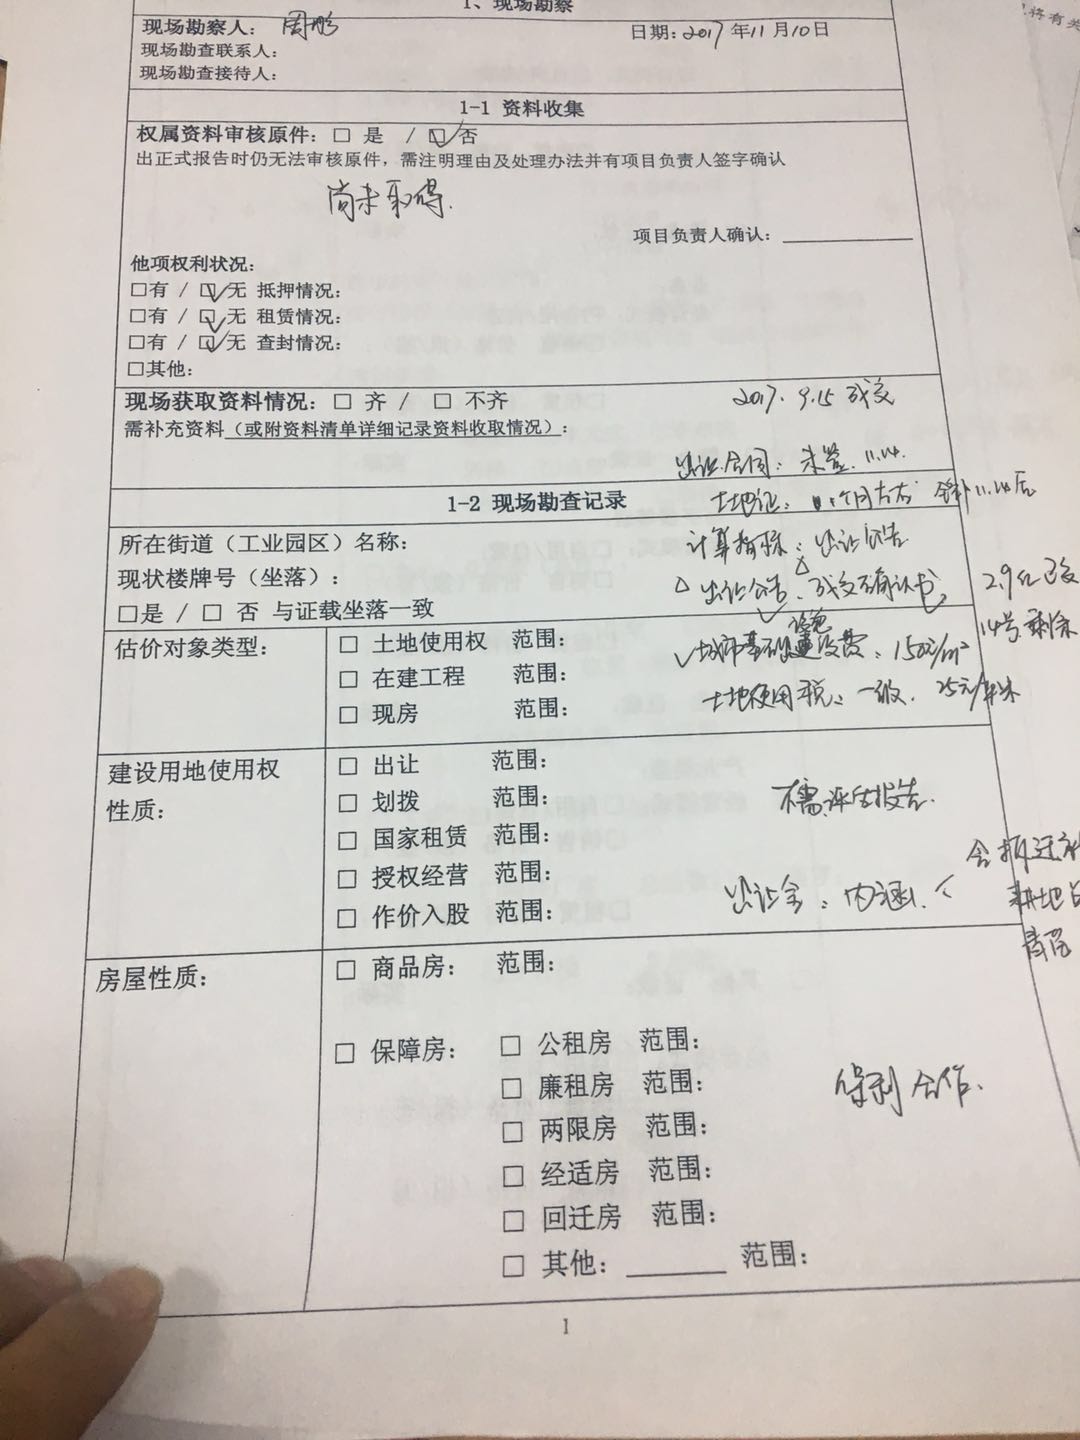 1、现场勘察
现场勘察人： 周彤 日期：2017年11月10日
现场勘查联系人：
现场勘查接待人：
1-1 资料收集
权属资料审核原件：□ 是 / ☑否
出正式报告时仍无法审核原件，需注明理由及处理办法并有项目负责人签字确认
尚未取得.
项目负责人确认：
他项权利状况：
□有 / ☑无 抵押情况：
□有 / ☑无 租赁情况：
□有 / ☑无 查封情况：
□其他：
现场获取资料情况：□ 齐 / □ 不齐 2017. 9.15 成交
需补充资料（或附资料清单详细记录资料收取情况）：
出让合同：未签. 11.14.
1-2 现场勘查记录 土地证： 个月左右 11.14后
所在街道（工业园区）名称： 计算指标：出让公告
现状楼牌号（坐落）： △ 出让公告、成交确认书, 2.9亿已交
□是 / □ 否 与证载坐落一致 14号剩余
估价对象类型： □ 土地使用权 范围： ✓城市基础设施建设费：150元/m²
□ 在建工程 范围： 土地使用税：一级. 25元/平米
□ 现房 范围：
建设用地使用权性质： □ 出让 范围：
□ 划拨 范围： 不需评估报告.
□ 国家租赁 范围：
□ 授权经营 范围： 含拆迁补
□ 作价入股 范围： 出让金：内涵. < 耕地占
青苗
房屋性质： □ 商品房： 范围：
□ 保障房： □ 公租房 范围：
□ 廉租房 范围： 保利合作.
□ 两限房 范围：
□ 经适房 范围：
□ 回迁房 范围：
□ 其他： 范围：
1
将有关